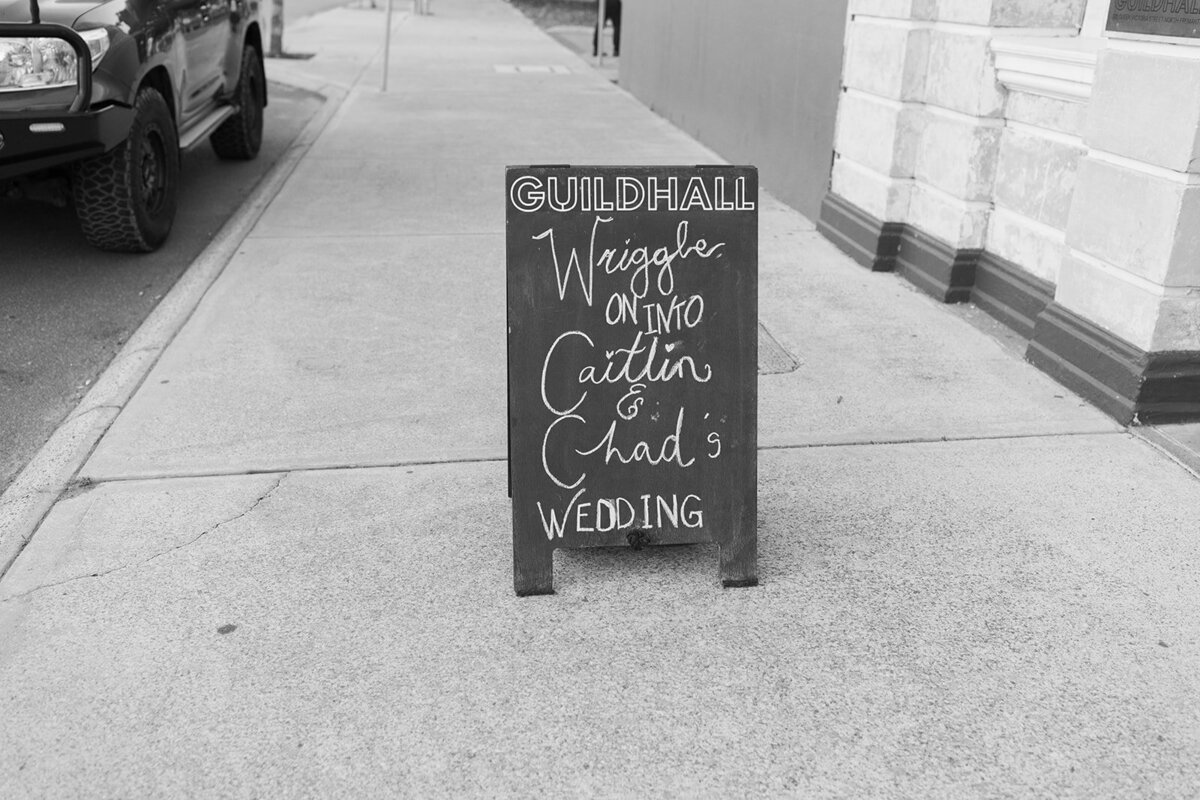 GUILDHALL
Wriggle
ON INTO
Caitlin
&
Chad's
WEDDING
GUILDHALL